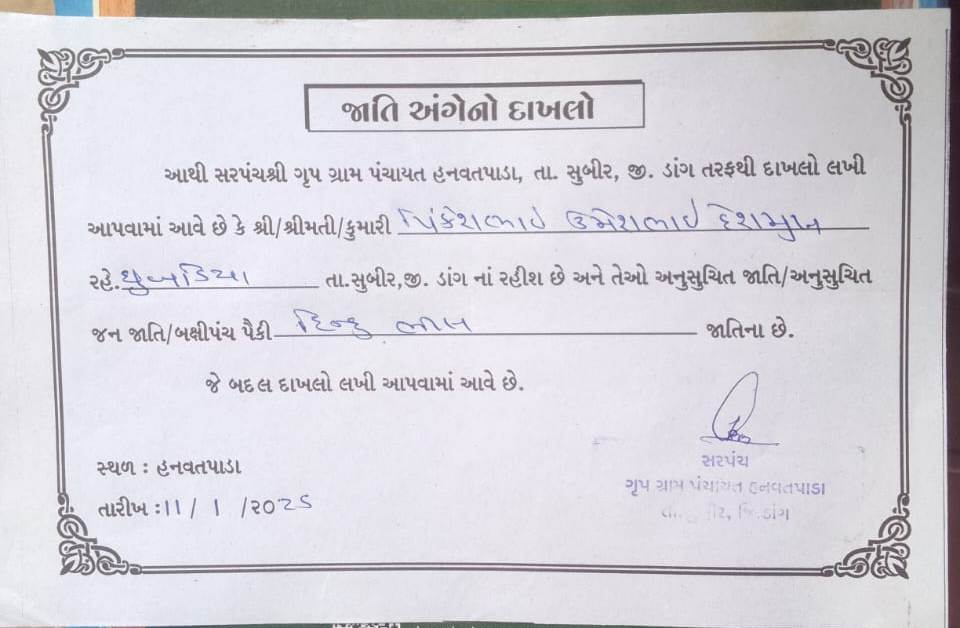 જાતિ અંગેનો દાખલો
આથી સરપંચશ્રી ગૃપ ગ્રામ પંચાયત હનવતપાડા, તા. સુબીર, જી. ડાંગ તરફથી દાખલો લખી
આપવામાં આવે છે કે શ્રી/શ્રીમતી/કુમારી પિંકેશભાઇ ઉમેશભાઇ દેશમુખ
રહે. ધુબડિયા તા.સુબીર,જી. ડાંગ નાં રહીશ છે અને તેઓ અનુસુચિત જાતિ/અનુસુચિત
જન જાતિ/બક્ષીપંચ પૈકી હિન્દુ ભીલ જાતિના છે.
જે બદલ દાખલો લખી આપવામાં આવે છે.
સરપંચ
ગૃપ ગ્રામ પંચાયત હનવતપાડા
જિ.ડાંગ
સ્થળ : હનવતપાડા
તારીખ :11 / 1 /૨૦૨૬